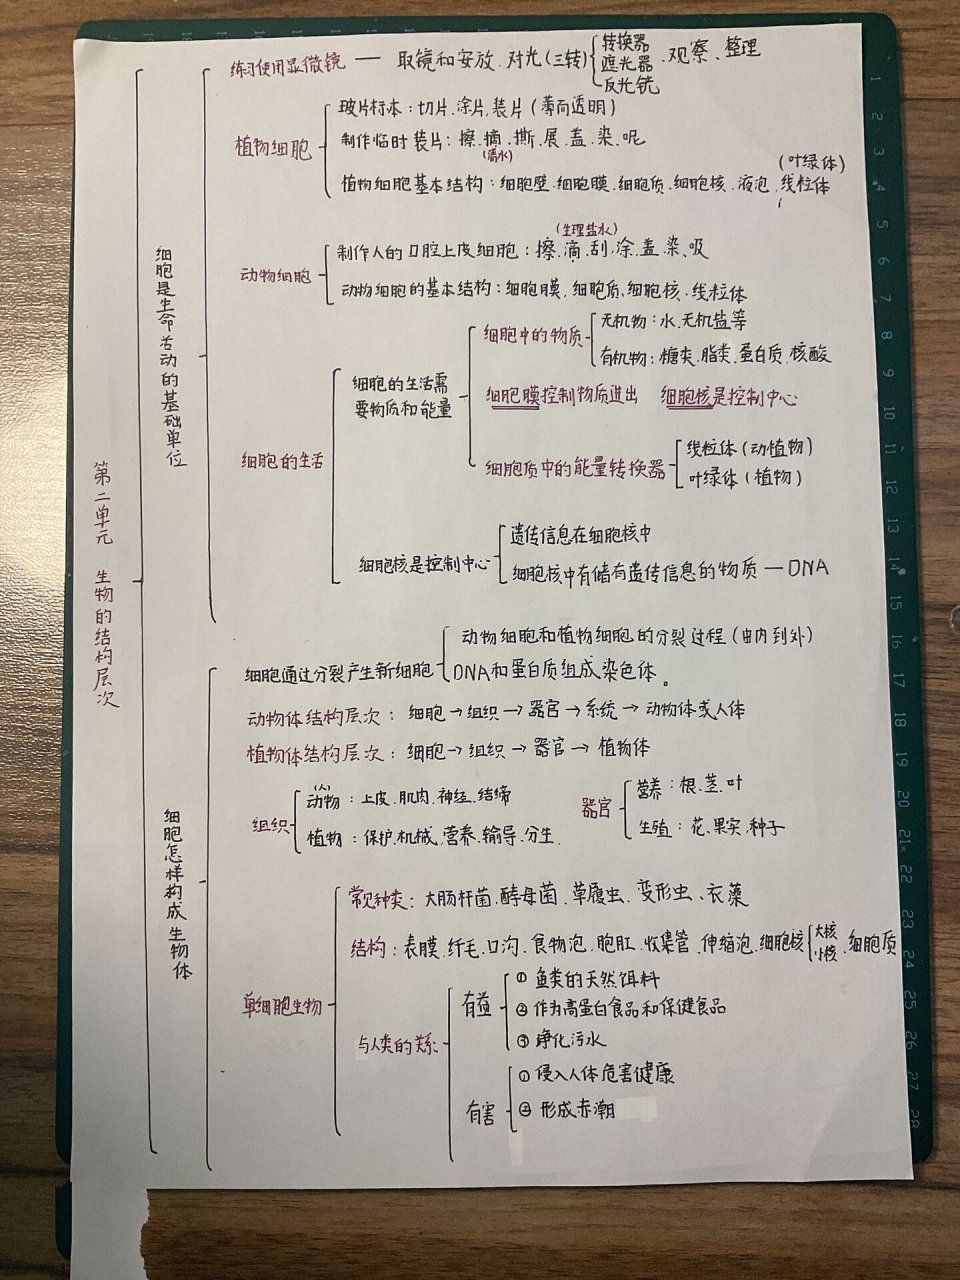 第二单元 生物的结构层次
细胞是生命活动的基础单位
练习使用显微镜 — 取镜和安放.对光(三转) 转换器 遮光器 反光镜 .观察、整理
植物细胞
玻片标本:切片.涂片.装片(薄而透明)
制作临时装片:擦.摘.撕.展.盖.染.呢
(清水)
植物细胞基本结构:细胞壁.细胞膜.细胞质.细胞核.液泡.线粒体
(叶绿体)
动物细胞
(生理盐水)
制作人的口腔上皮细胞:擦.滴.刮.涂.盖.染.吸
动物细胞的基本结构:细胞膜.细胞质.细胞核.线粒体
细胞的生活
细胞的生活需
要物质和能量
细胞中的物质
无机物:水.无机盐等
有机物:糖类.脂类.蛋白质.核酸
细胞膜控制物质进出 细胞核是控制中心
细胞质中的能量转换器
线粒体(动植物)
叶绿体(植物)
细胞核是控制中心
遗传信息在细胞核中
细胞核中有储有遗传信息的物质—DNA
细胞怎样构成生物体
细胞通过分裂产生新细胞
动物细胞和植物细胞的分裂过程(由内到外)
DNA和蛋白质组成染色体。
动物体结构层次:细胞→组织→器官→系统→动物体或人体
植物体结构层次:细胞→组织→器官→植物体
组织
(人)
动物:上皮.肌肉.神经.结缔
植物:保护.机械.营养.输导.分生.
器官
营养:根.茎.叶
生殖:花.果实.种子
单细胞生物
常见种类:大肠杆菌.酵母菌.草履虫.变形虫、衣藻
结构:表膜.纤毛.口沟.食物泡.胞肛.收集管.伸缩泡.细胞核 大核 小核 .细胞质
与人类的关系
有益
① 鱼类的天然饵料
② 作为高蛋白食品和保健食品
③ 净化污水
有害
① 侵入人体危害健康
② 形成赤潮
1 2 3 4 5 6 7 8 9 10 11 12 13 14 15 16 17 18 19 20 21 22 23 24 25 26 27 28